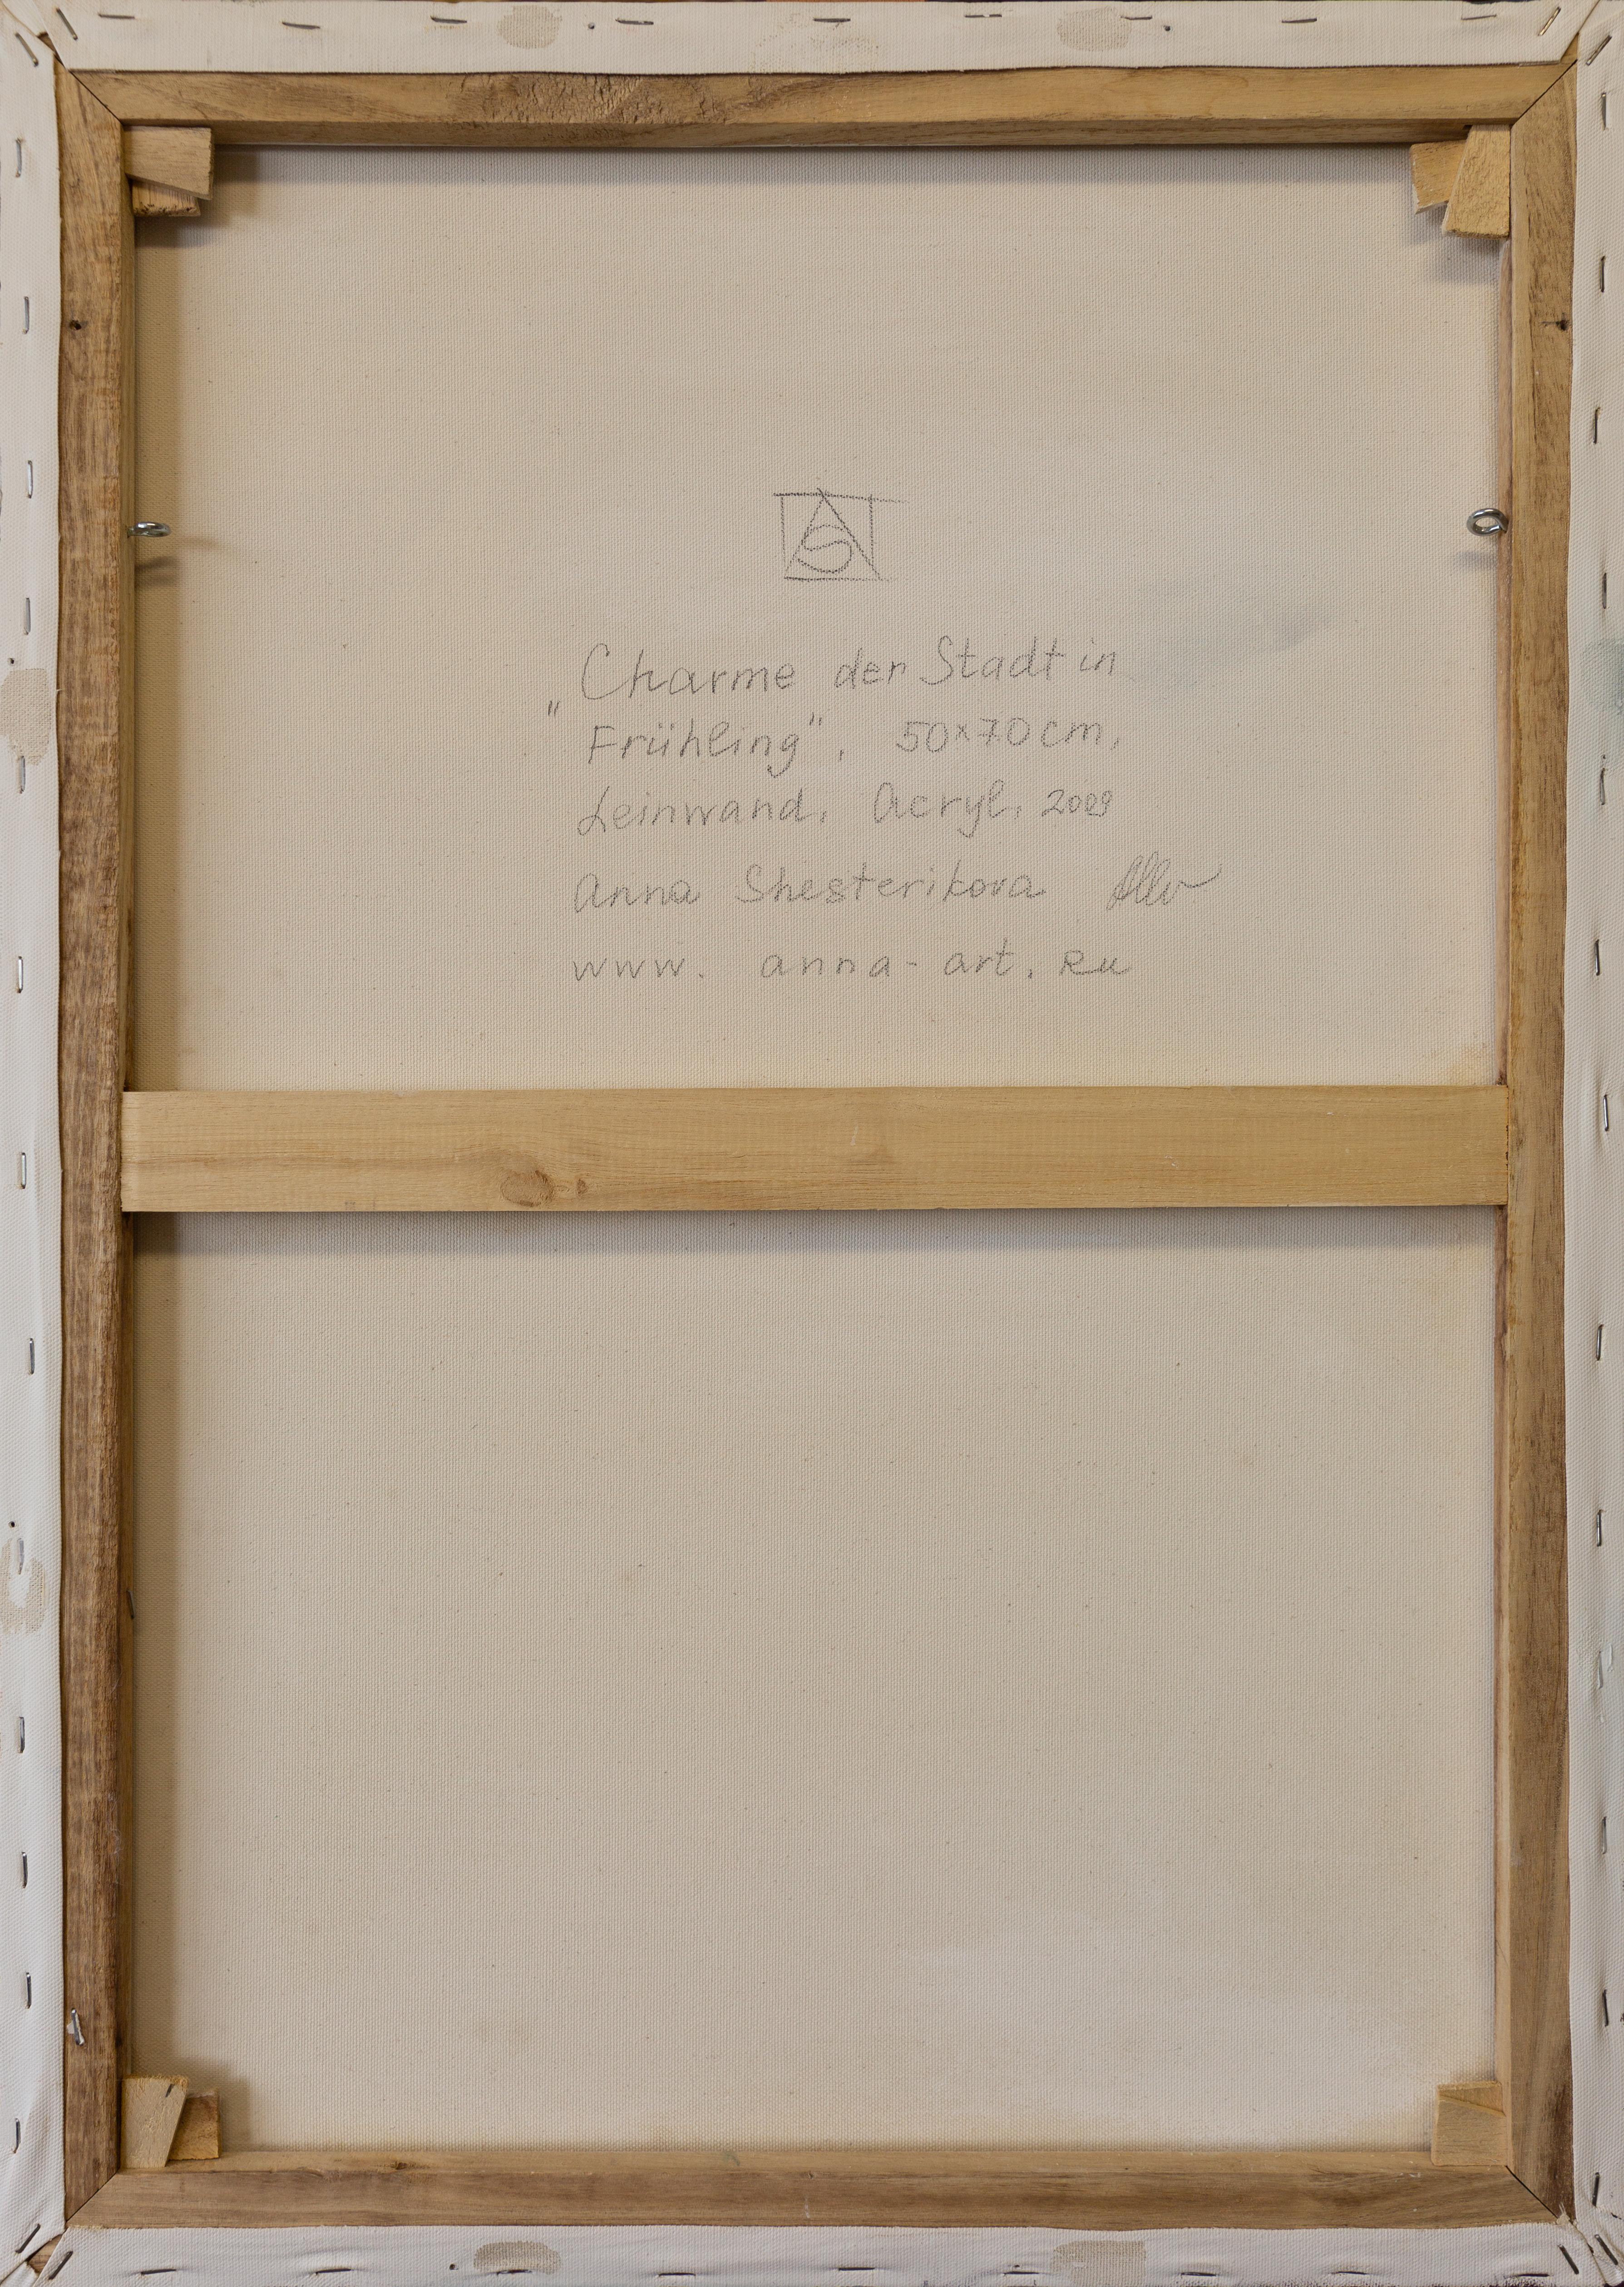 AS
„Charme der Stadt in
Frühling", 50x70cm,
Leinwand, Acryl, 2009
Anna Shesterikova
www. anna-art.Ru